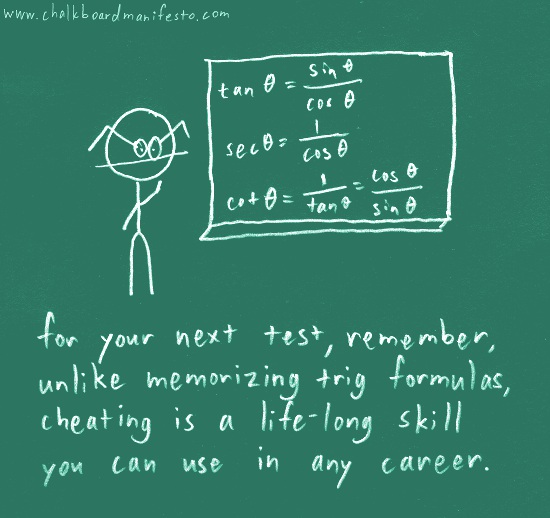 www.chalkboardmanifesto.com
tan θ = sin θ / cos θ
sec θ = 1 / cos θ
cot θ = 1 / tan θ = cos θ / sin θ
for your next test, remember,
unlike memorizing trig formulas,
cheating is a life-long skill
you can use in any career.